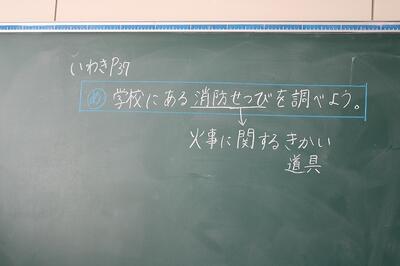 いわきP37
め 学校にある消防せつびを調べよう。
火事に関するきかい
道具